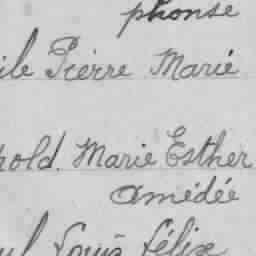 phonse
ile Pierre Marie
pold. Marie Esther
Amédée
ul Louis Félix